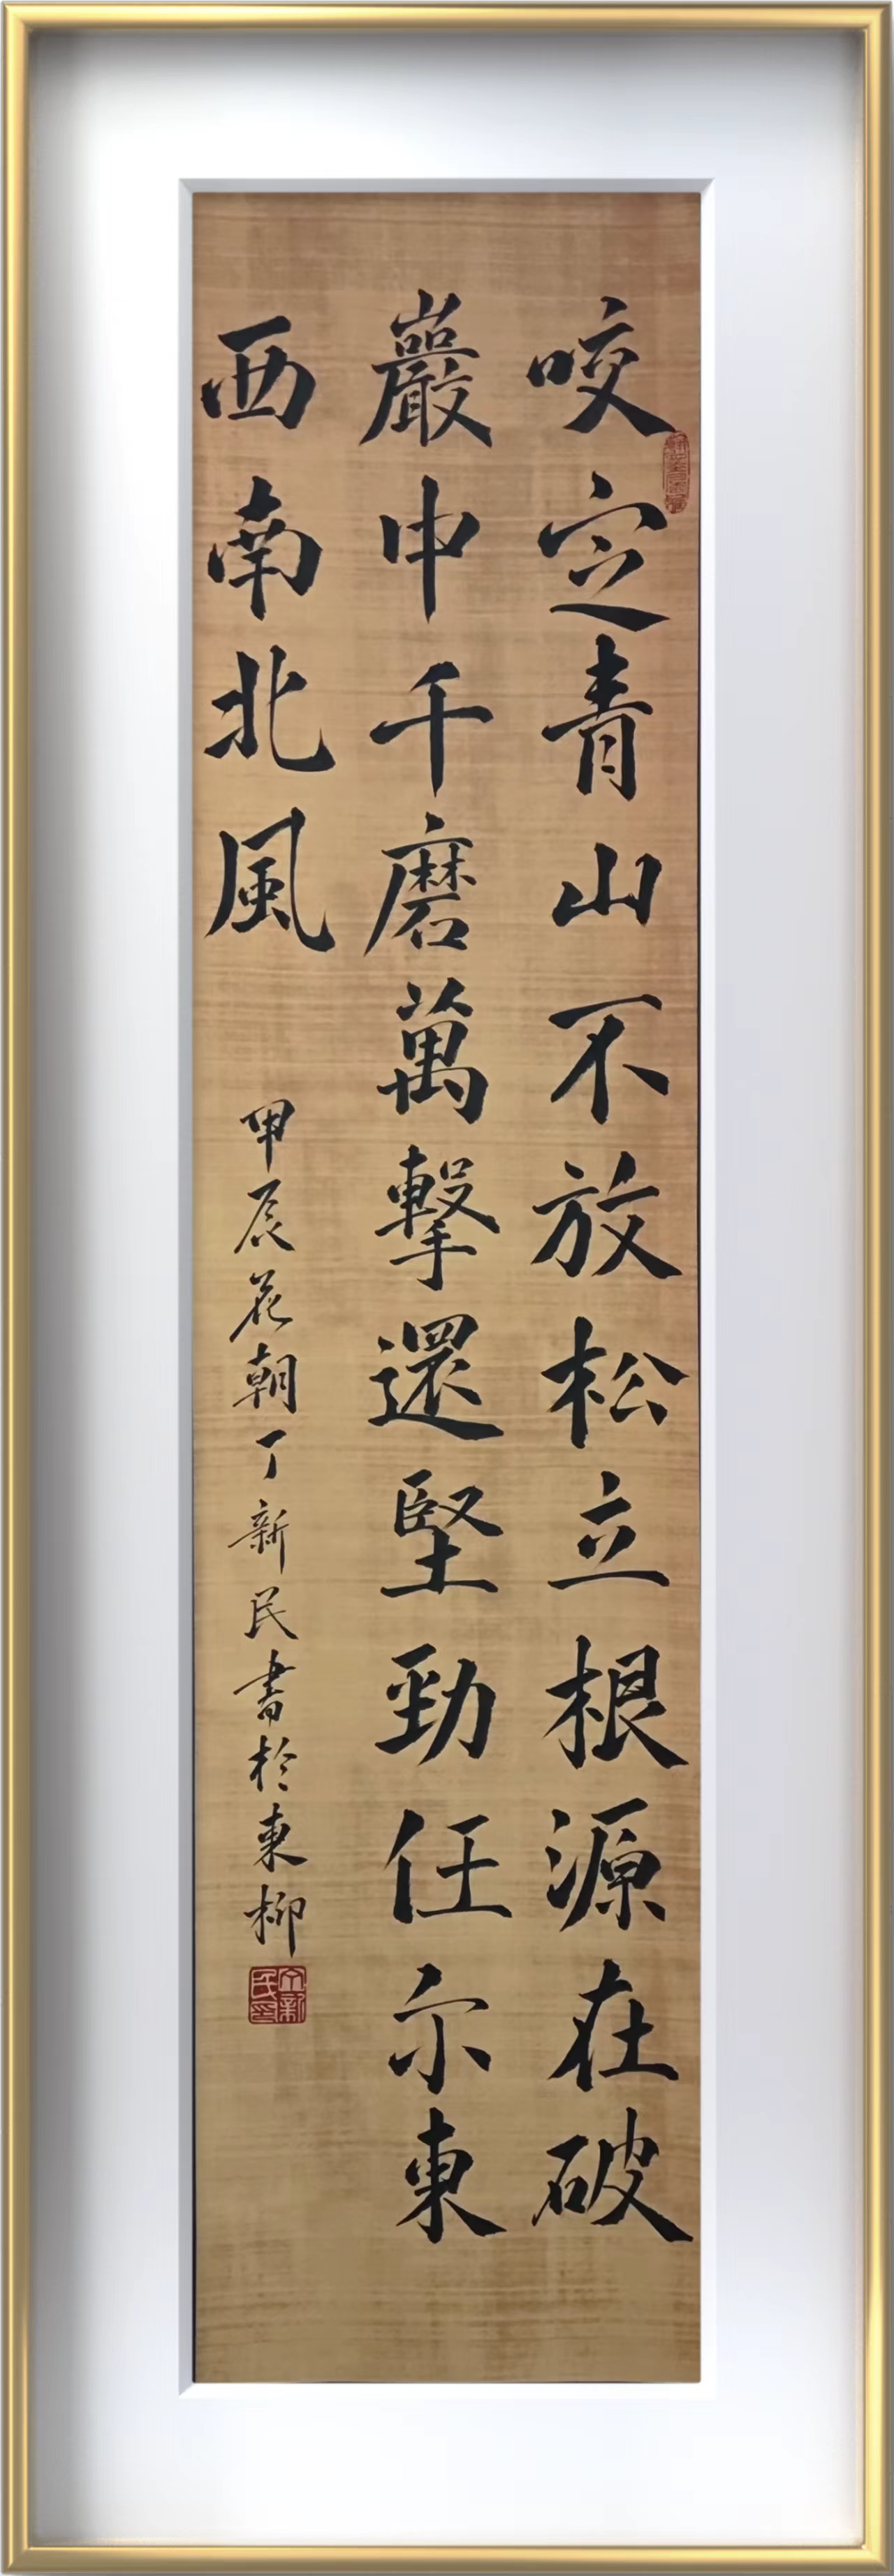 咬定青山不放松立根源在破
巖中千磨萬擊還堅勁任尒東
西南北風
甲辰花朝丁新民書於東柳